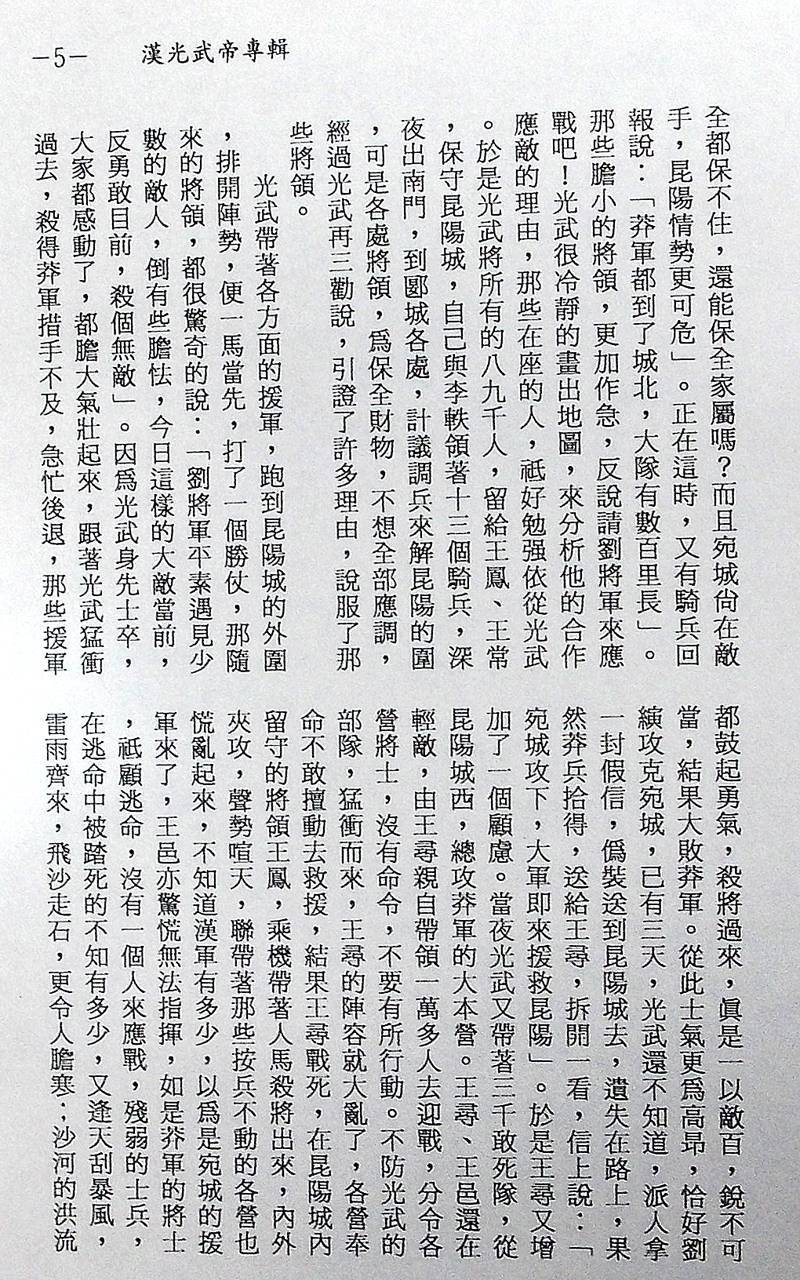 —5—
漢光武帝專輯
全都保不住，還能保全家屬嗎？而且宛城尙在敵
手，昆陽情勢更可危」。正在這時，又有騎兵回
報說：「莽軍都到了城北，大隊有數百里長」。
那些膽小的將領，更加作急，反說請劉將軍來應
戰吧！光武很冷靜的畫出地圖，來分析他的合作
應敵的理由，那些在座的人，祗好勉强依從光武
。於是光武將所有的八九千人，留給王鳳、王常
，保守昆陽城，自己與李軼領著十三個騎兵，深
夜出南門，到郾城各處，計議調兵來解昆陽的圍
，可是各處將領，爲保全財物，不想全部應調，
經過光武再三勸說，引證了許多理由，說服了那
些將領。
光武帶著各方面的援軍，跑到昆陽城的外圍
，排開陣勢，便一馬當先，打了一個勝仗，那隨
來的將領，都很驚奇的說：「劉將軍平素遇見少
數的敵人，倒有些膽怯，今日這樣的大敵當前，
反勇敢目前，殺個無敵」。因爲光武身先士卒，
大家都感動了，都膽大氣壯起來，跟著光武猛衝
過去，殺得莽軍措手不及，急忙後退，那些援軍
都鼓起勇氣，殺將過來，眞是一以敵百，銳不可
當，結果大敗莽軍。從此士氣更爲高昂，恰好劉
縯攻克宛城，已有三天，光武還不知道，派人拿
一封假信，僞裝送到昆陽城去，遺失在路上，果
然莽兵拾得，送給王尋，拆開一看，信上說：「
宛城攻下，大軍即來援救昆陽」。於是王尋又增
加了一個顧慮。當夜光武又帶著三千敢死隊，從
昆陽城西，總攻莽軍的大本營。王尋、王邑還在
輕敵，由王尋親自帶領一萬多人去迎戰，分令各
營將士，沒有命令，不要有所行動。不防光武的
部隊，猛衝而來，王尋的陣容就大亂了，各營奉
命不敢擅動去救援，結果王尋戰死，在昆陽城內
留守的將領王鳳，乘機帶著人馬殺將出來，內外
夾攻，聲勢喧天，聯帶著那些按兵不動的各營也
慌亂起來，不知道漢軍有多少，以爲是宛城的援
軍來了，王邑亦驚慌無法指揮，如是莽軍的將士
，祗顧逃命，沒有一個人來應戰，殘弱的士兵，
在逃命中被踏死的不知有多少，又逢天刮暴風，
雷雨齊來，飛沙走石，更令人膽寒；沙河的洪流